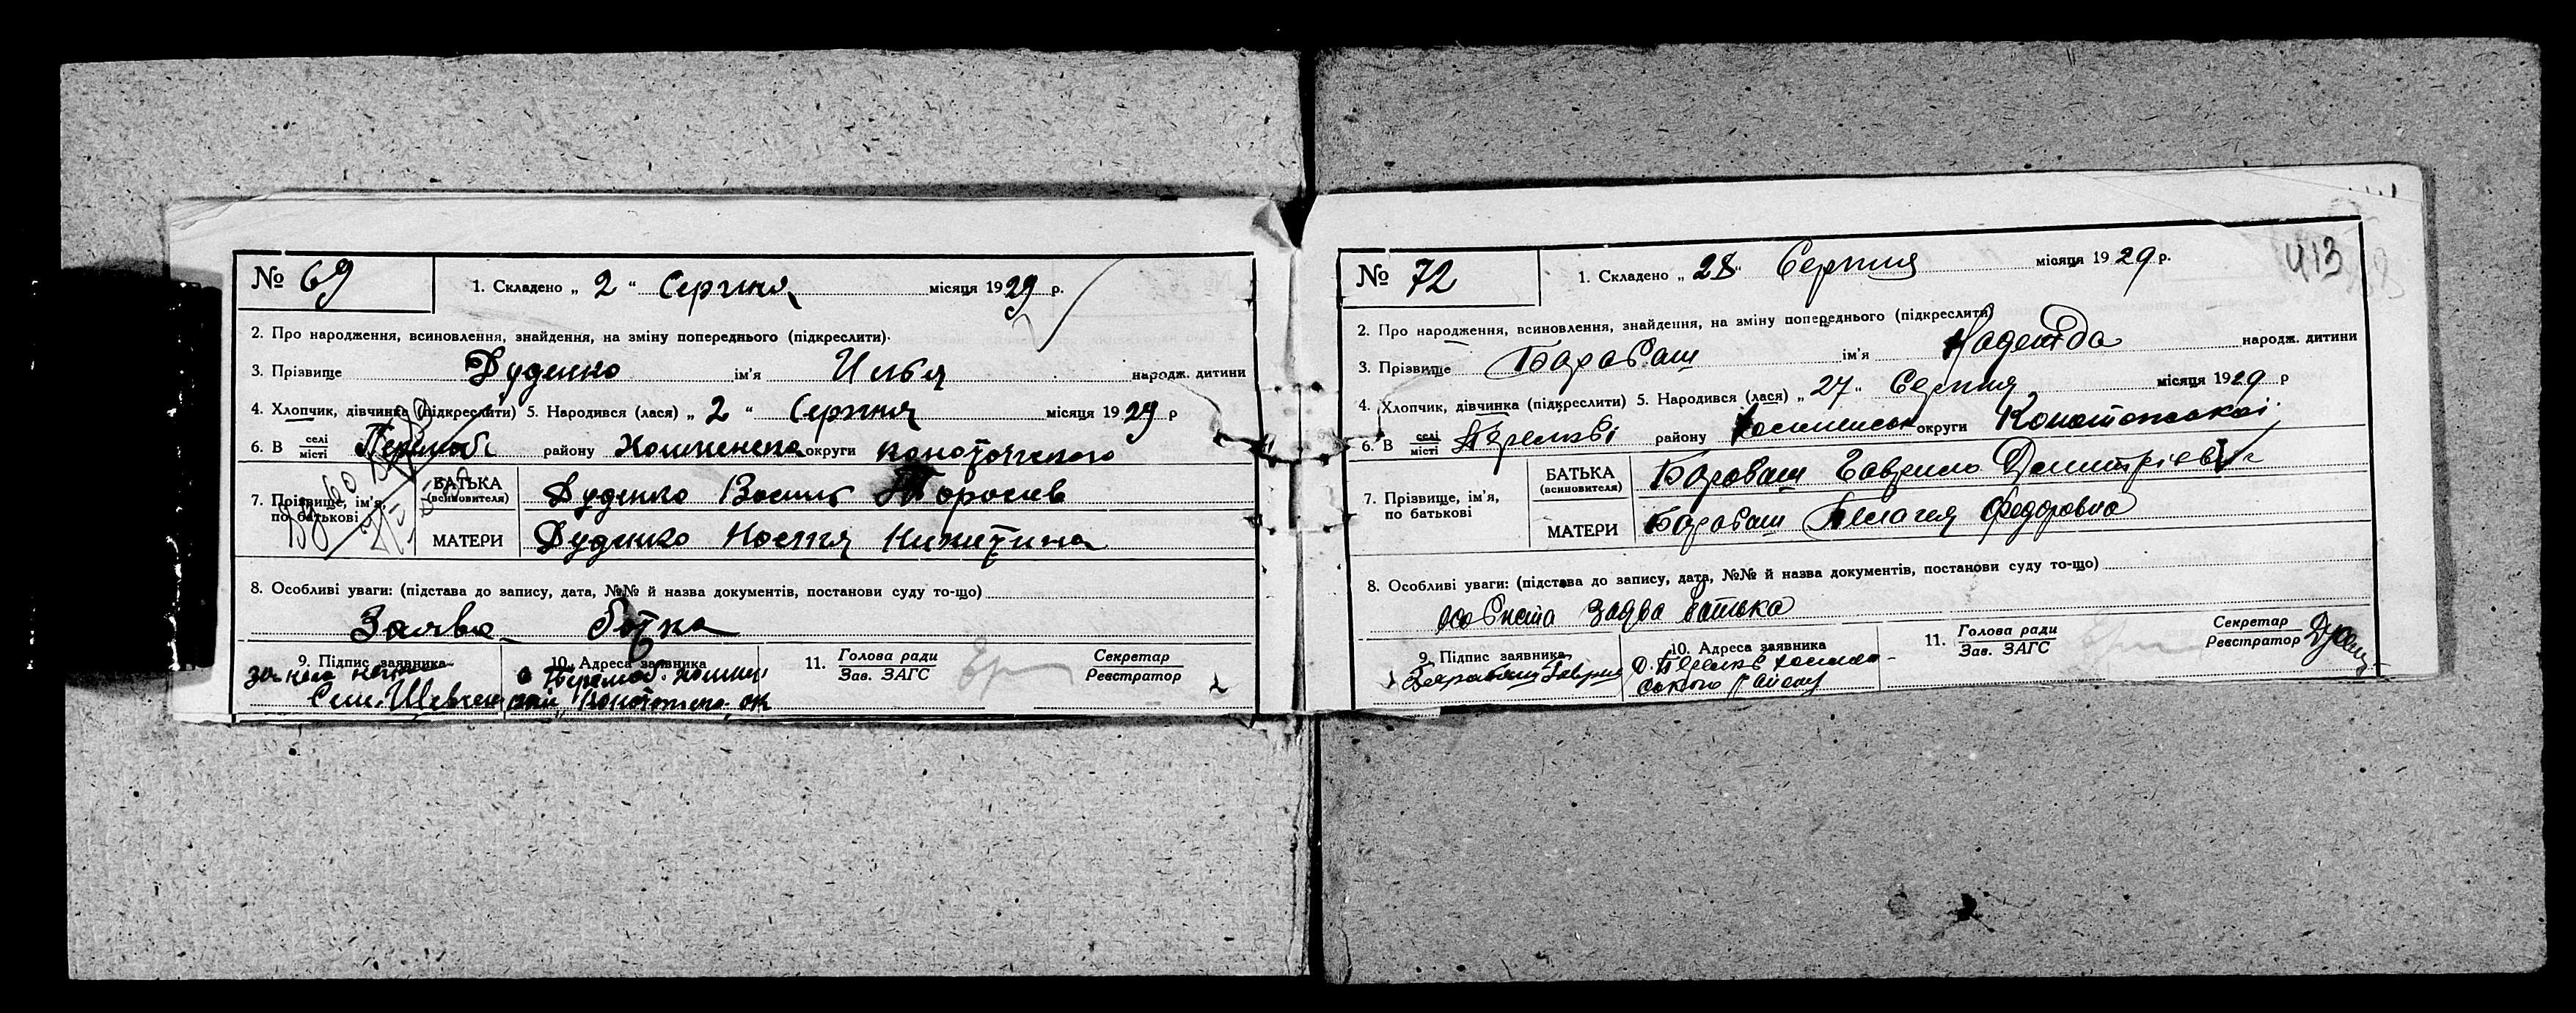 № 69
1. Складено „ 2 “ Серпня місяця 1929 р.
2. Про народження, всиновлення, знайдення, на зміну попереднього (підкреслити).
3. Прізвище Дуденко ім'я Илья народж. дитини
4. Хлопчик, дівчинка (підкреслити) 5. Народився (лася) „ 2 “ Серпня місяця 1929 р
6. В селі місті району округи
7. Прізвище, ім'я, по батькові
БАТЬКА (всиновителя) Дуденко Василь Тарасев
МАТЕРИ Дуденко Настя Никитина
8. Особливі уваги: (підстава до запису, дата, №№ й назва документів, постанови суду то-що)
Заява батка
9. Підпис заявника
10. Адреса заявника
11. Голова ради Зав. ЗАГС
Секретар Реєстратор
413
№ 72
1. Складено „ 28 “ Серпня місяця 1929 р.
2. Про народження, всиновлення, знайдення, на зміну попереднього (підкреслити)
3. Прізвище Барабаш ім'я Надежда народж. дитини
4. Хлопчик, дівчинка (підкреслити) 5. Народився (лася) „ 27 “ Серпня місяця 1929 р
6. В селі місті району округи Конотопської
7. Прізвище, ім'я, по батькові
БАТЬКА (всиновителя) Барабаш Гаврило Дмитрієвич
МАТЕРИ Барабаш Пелагея Федоровна
8. Особливі уваги: (підстава до запису, дата, №№ й назва документів, постанови суду то-що)
особиста заява батька
9. Підпис заявника Барабаш Гаврил
10. Адреса заявника району
11. Голова ради Зав. ЗАГС
Секретар Реєстратор